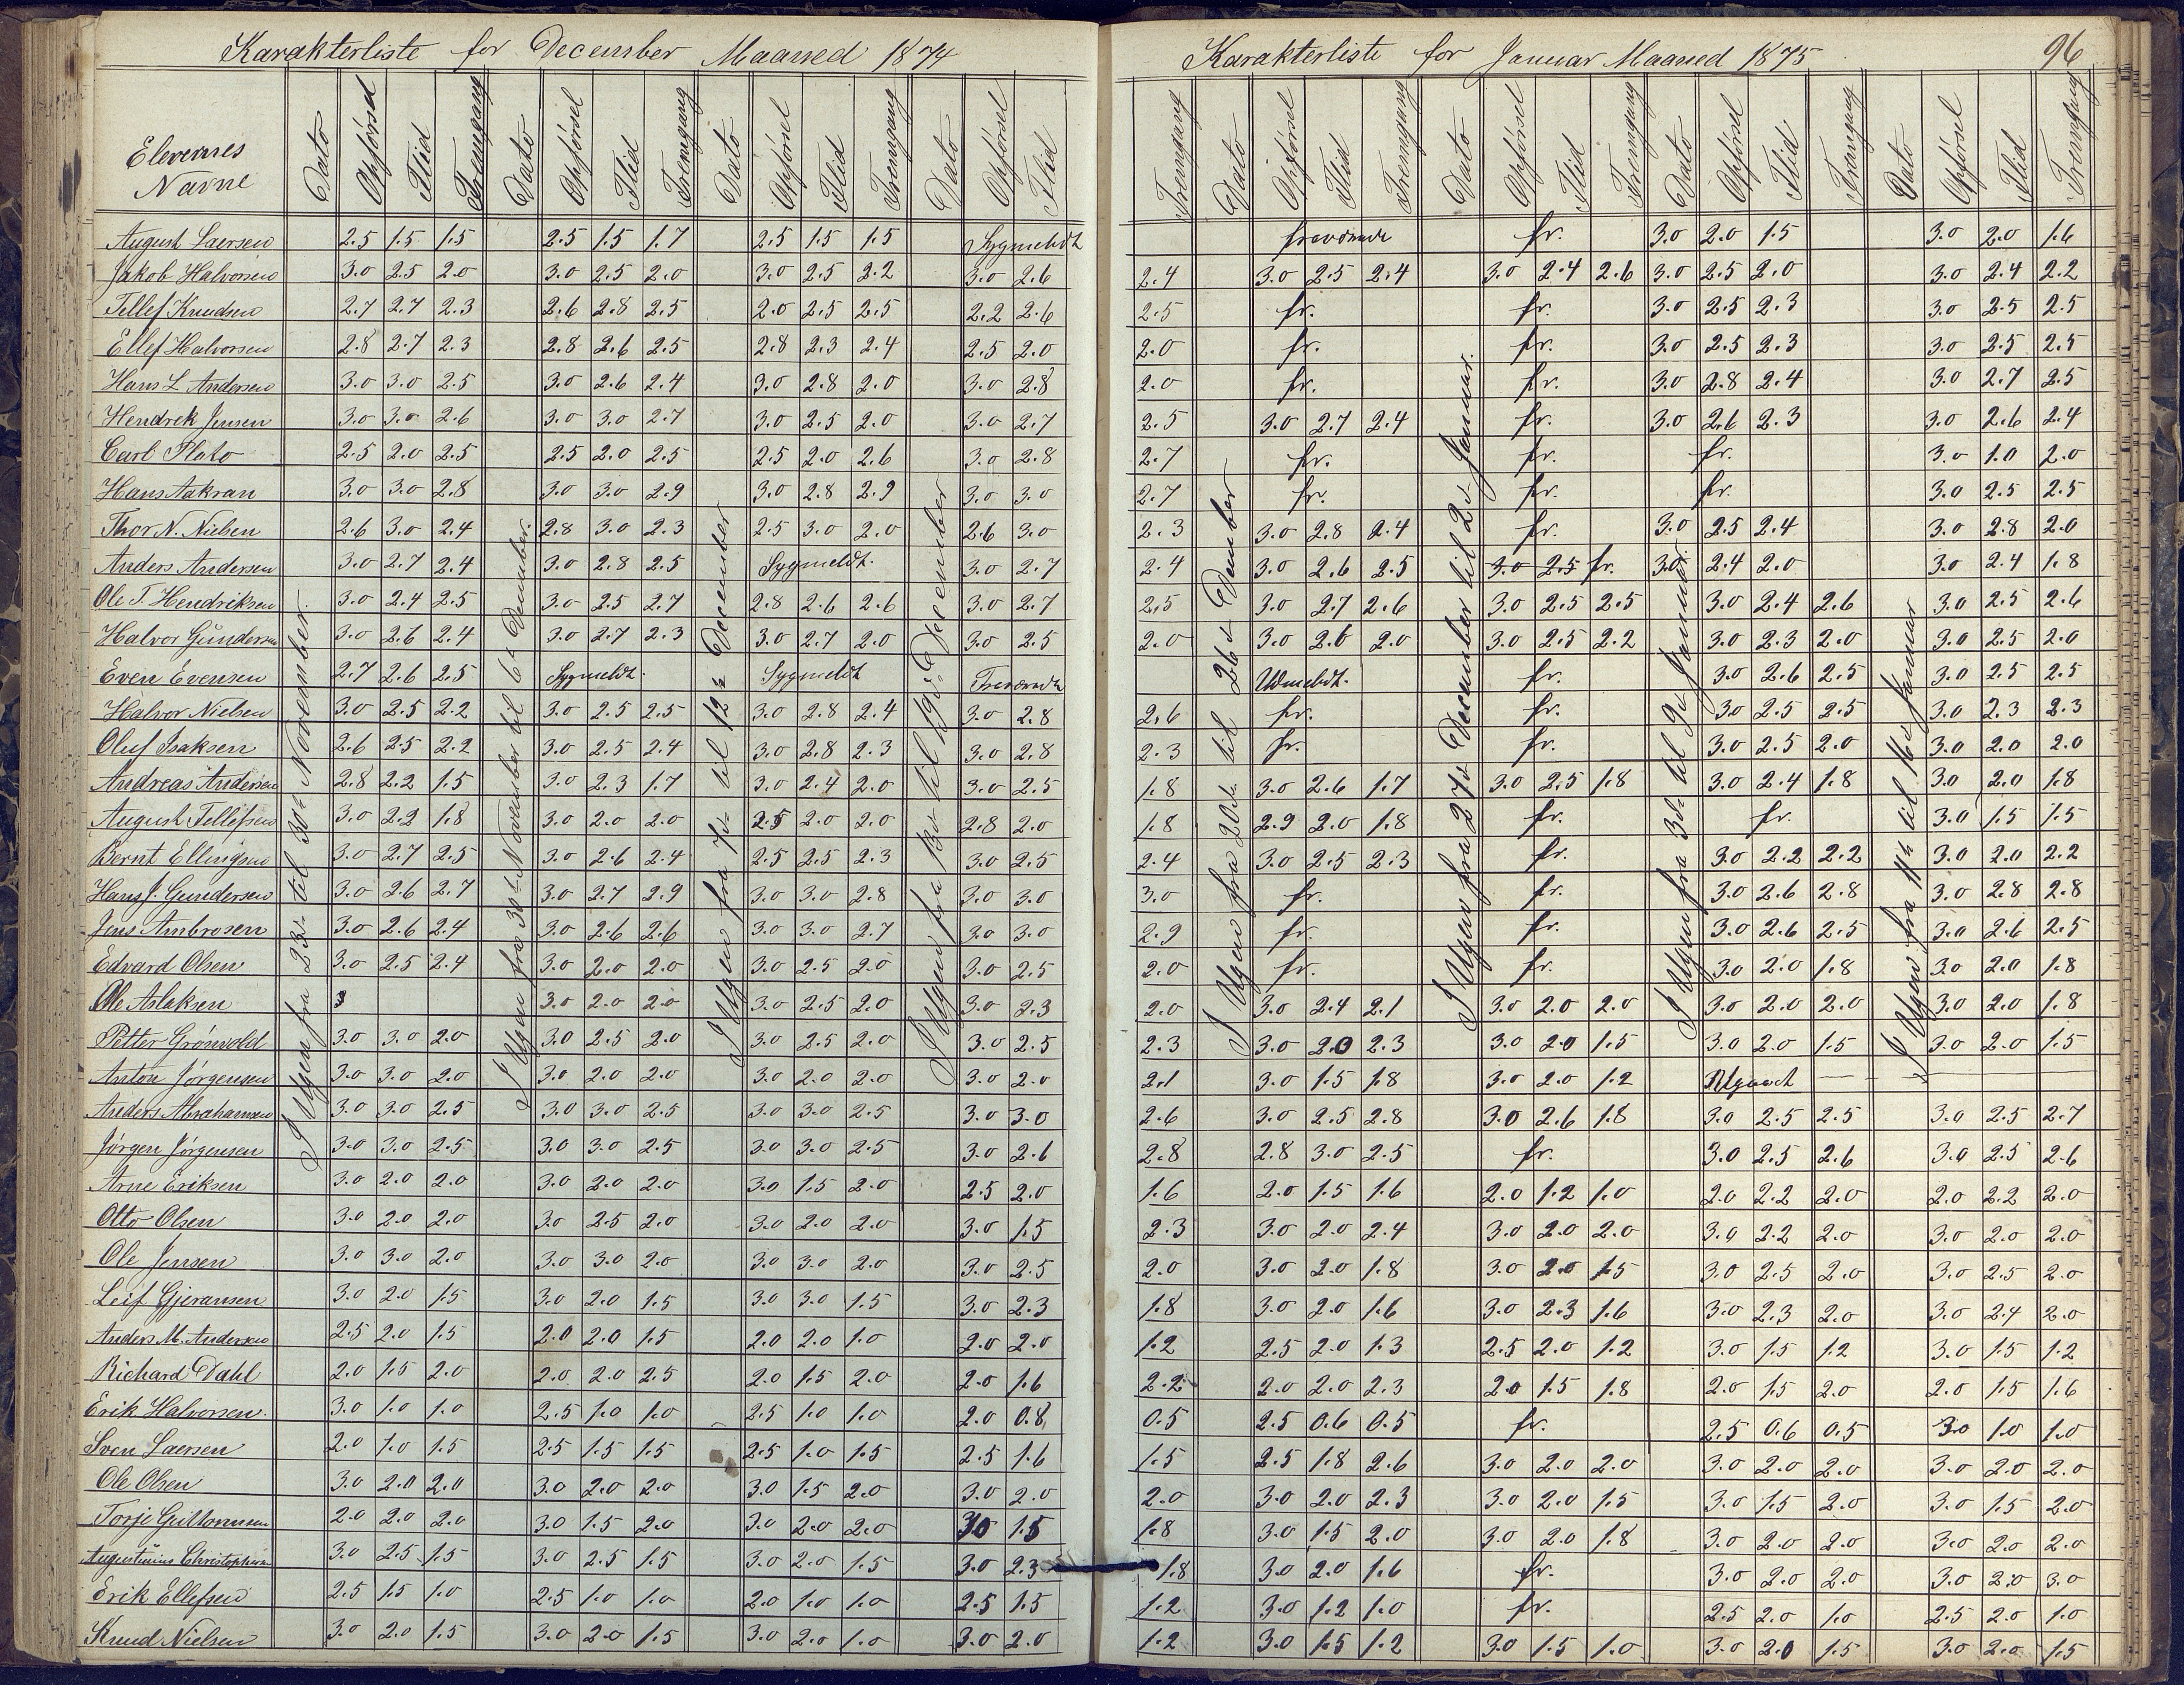 Karakterliste for December Maaned 1874
Elevernes Navne Dato Opførsel Flid Fremgang Dato Opførsel Flid Fremgang Dato Opførsel Flid Fremgang Dato Opførsel Flid
I Ugen fra 23de til 30te November.
I Ugen fra 30te November til 6te December.
I Ugen fra 7de til 12te December
I Ugen fra 13de til 19de December
August Laersen 2.5 1.5 1.5 2.5 1.5 1.7 2.5 1.5 1.5 Sygmeldt
Jakob Halvorsen 3.0 2.5 2.0 3.0 2.5 2.0 3.0 2.5 2.2 3.0 2.6
Tellef Knudsen 2.7 2.7 2.3 2.6 2.8 2.5 2.0 2.5 2.5 2.2 2.6
Ellef Halvorsen 2.8 2.7 2.3 2.8 2.6 2.5 2.8 2.3 2.4 2.5 2.0
Hans L Andersen 3.0 3.0 2.5 3.0 2.6 2.4 3.0 2.8 2.0 3.0 2.8
Hendrek Jensen 3.0 3.0 2.6 3.0 3.0 2.7 3.0 2.5 2.0 3.0 2.7
Carl Plato 2.5 2.0 2.5 2.5 2.0 2.5 2.5 2.0 2.6 3.0 2.8
Hans Aakran 3.0 3.0 2.8 3.0 3.0 2.9 3.0 2.8 2.9 3.0 3.0
Thor N. Nielsen 2.6 3.0 2.4 2.8 3.0 2.3 2.5 3.0 2.0 2.6 3.0
Anders Andersen 3.0 2.7 2.4 3.0 2.8 2.5 Sygmeldt. 3.0 2.7
Ole T. Hendriksen 3.0 2.4 2.5 3.0 2.5 2.7 2.8 2.6 2.6 3.0 2.7
Halvor Gundersen 3.0 2.6 2.4 3.0 2.7 2.3 3.0 2.7 2.0 3.0 2.5
Even Evensen 2.7 2.6 2.5 Sygmeldt. Sygmeldt Fraværende
Halvor Nielsen 3.0 2.5 2.2 3.0 2.5 2.5 3.0 2.8 2.4 3.0 2.8
Oluf Isaksen 2.6 2.5 2.2 3.0 2.5 2.4 3.0 2.8 2.3 3.0 2.8
Andreas Andersen 2.8 2.2 1.5 3.0 2.3 1.7 3.0 2.4 2.0 3.0 2.5
August Tellefsen 3.0 2.2 1.8 3.0 2.0 2.0 2.5 2.0 2.0 2.8 2.0
Bernt Ellingsen 3.0 2.7 2.5 3.0 2.6 2.4 2.5 2.5 2.3 3.0 2.5
Hans J. Gundersen 3.0 2.6 2.7 3.0 2.7 2.9 3.0 3.0 2.8 3.0 3.0
Jens Ambrosen 3.0 2.6 2.4 3.0 2.6 2.6 3.0 3.0 2.7 3.0 3.0
Edvard Olsen 3.0 2.5 2.4 3.0 2.0 2.0 3.0 2.5 2.0 3.0 2.5
Ole Aslaksen 3 3.0 2.0 2.0 3.0 2.5 2.0 3.0 2.3
Petter Grønvold 3.0 3.0 2.0 3.0 2.5 2.0 3.0 2.5 2.0 3.0 2.5
Anton Jørgensen 3.0 3.0 2.0 3.0 2.0 2.0 3.0 2.0 2.0 3.0 2.0
Anders Abrahamsen 3.0 3.0 2.5 3.0 3.0 2.5 3.0 3.0 2.5 3.0 3.0
Jørgen Jørgensen 3.0 3.0 2.5 3.0 3.0 2.5 3.0 3.0 2.5 3.0 2.6
Arne Eriksen 3.0 2.0 2.0 3.0 2.0 2.0 3.0 1.5 2.0 2.5 2.0
Otto Olsen 3.0 2.0 2.0 3.0 2.5 2.0 3.0 2.0 2.0 3.0 1.5
Ole Jensen 3.0 3.0 2.0 3.0 3.0 2.0 3.0 3.0 2.0 3.0 2.5
Leif Gjeransen 3.0 2.0 1.5 3.0 2.0 1.5 3.0 3.0 1.5 3.0 2.3
Anders M. Andersen 2.5 2.0 1.5 2.0 2.0 1.5 2.0 2.0 1.0 2.0 2.0
Richard Dahl 2.0 1.5 2.0 2.0 2.0 2.5 2.0 1.5 2.0 2.0 1.6
Erik Halvorsen. 3.0 1.0 1.0 2.5 1.0 1.0 2.5 1.0 1.0 2.0 0.8
Sven Laersen 2.0 1.0 1.5 2.5 1.5 1.5 2.5 1.0 1.5 2.5 1.6
Ole Olsen 3.0 2.0 2.0 3.0 2.0 2.0 3.0 1.5 2.0 3.0 2.0
Torje Guttormsen 2.0 2.0 2.0 3.0 1.5 2.0 3.0 2.0 2.0 3.0 1.5
Augustinius Christophersen 3.0 2.5 1.5 3.0 2.5 1.5 3.0 2.0 1.5 3.0 2.3
Erik Ellefsen 2.5 1.5 1.0 2.5 1.0 1.0 2.0 1.0 1.0 2.5 1.5
Knud Nielsen 3.0 2.0 1.5 3.0 2.0 1.5 3.0 2.0 1.0 3.0 2.0
Karakterliste for Januar Maaned 1875 96
Fremgang Dato Opførsel Flid Fremgang Dato Opførsel Flid Fremgang Dato Opførsel Flid Fremgang Dato Opførsel Flid Fremgang
I Ugen fra 20de til 26de December
I Ugen fra 27de December til 2de Januar.
I Ugen fra 3die til 9de Januar.
I Ugen fra 11te til 16de Januar
fraværende fr. 3.0 2.0 1.5 3.0 2.0 1.6
2.4 3.0 2.5 2.4 3.0 2.4 2.6 3.0 2.5 2.0 3.0 2.4 2.2
2.5 fr. fr. 3.0 2.5 2.3 3.0 2.5 2.5
2.0 fr. fr. 3.0 2.5 2.3 3.0 2.5 2.5
2.0 fr. fr. 3.0 2.8 2.4 3.0 2.7 2.5
2.5 3.0 2.7 2.4 fr. 3.0 2.6 2.3 3.0 2.6 2.4
2.7 fr. fr. fr. 3.0 1.0 2.0
2.7 fr. fr. fr. 3.0 2.5 2.5
2.3 3.0 2.8 2.4 fr. 3.0 2.5 2.4 3.0 2.8 2.0
2.4 3.0 2.6 2.5 3.0 2.5 fr. 3.0 2.4 2.0 3.0 2.4 1.8
2.5 3.0 2.7 2.6 3.0 2.5 2.5 3.0 2.4 2.6 3.0 2.5 2.6
2.0 3.0 2.6 2.0 3.0 2.5 2.2 3.0 2.3 2.0 3.0 2.5 2.0
Udmeldt. fr. 3.0 2.6 2.5 3.0 2.5 2.5
2.6 fr. fr. 3.0 2.5 2.5 3.0 2.3 2.3
2.3 fr. fr. 3.0 2.5 2.0 3.0 2.0 2.0
1.8 3.0 2.6 1.7 3.0 2.5 1.8 3.0 2.4 1.8 3.0 2.0 1.8
1.8 2.9 2.0 1.8 fr. fr. 3.0 1.5 1.5
2.4 3.0 2.5 2.3 fr. 3.0 2.2 2.2 3.0 2.0 2.2
3.0 fr. fr. 3.0 2.6 2.8 3.0 2.8 2.8
2.9 fr. fr. 3.0 2.6 2.5 3.0 2.6 2.5
2.0 fr. fr. 3.0 2.0 1.8 3.0 2.0 1.8
2.0 3.0 2.4 2.1 3.0 2.0 2.0 3.0 2.0 2.0 3.0 2.0 1.8
2.3 3.0 2.0 2.3 3.0 2.0 1.5 3.0 2.0 1.5 3.0 2.0 1.5
2.1 3.0 1.5 1.8 3.0 2.0 1.2 Udgaaet — — —
2.6 3.0 2.5 2.8 3.0 2.6 1.8 3.0 2.5 2.5 3.0 2.5 2.7
2.8 2.8 3.0 2.5 fr. 3.0 2.5 2.6 3.0 2.5 2.6
1.6 2.0 1.5 1.6 2.0 1.2 1.0 2.0 2.2 2.0 2.0 2.2 2.0
2.3 3.0 2.0 2.4 3.0 2.0 2.0 3.0 2.2 2.0 3.0 2.0 2.0
2.0 3.0 2.0 1.8 3.0 2.0 1.5 3.0 2.5 2.0 3.0 2.5 2.0
1.8 3.0 2.0 1.6 3.0 2.3 1.6 3.0 2.3 2.0 3.0 2.4 2.0
1.2 2.5 2.0 1.3 2.5 2.0 1.2 3.0 1.5 1.2 3.0 1.5 1.2
2.2 2.0 2.0 2.3 2.0 1.5 1.8 2.0 1.5 2.0 2.0 1.5 1.6
0.5 2.5 0.6 0.5 fr. 2.5 0.6 0.5 3.0 1.0 1.0
1.5 2.5 1.8 2.6 3.0 2.0 2.0 3.0 2.0 2.0 3.0 2.0 2.0
2.0 3.0 2.0 2.3 3.0 2.0 1.5 3.0 1.5 2.0 3.0 1.5 2.0
1.8 3.0 1.5 2.0 3.0 2.0 1.8 3.0 2.0 2.0 3.0 2.0 2.0
1.8 3.0 2.0 1.6 fr. 3.0 2.0 2.0 3.0 2.0 3.0
1.2 3.0 1.2 1.0 fr. 2.5 2.0 1.0 2.5 2.0 1.0
1.2 3.0 1.5 1.2 3.0 1.5 1.0 3.0 2.0 1.5 3.0 2.0 1.5